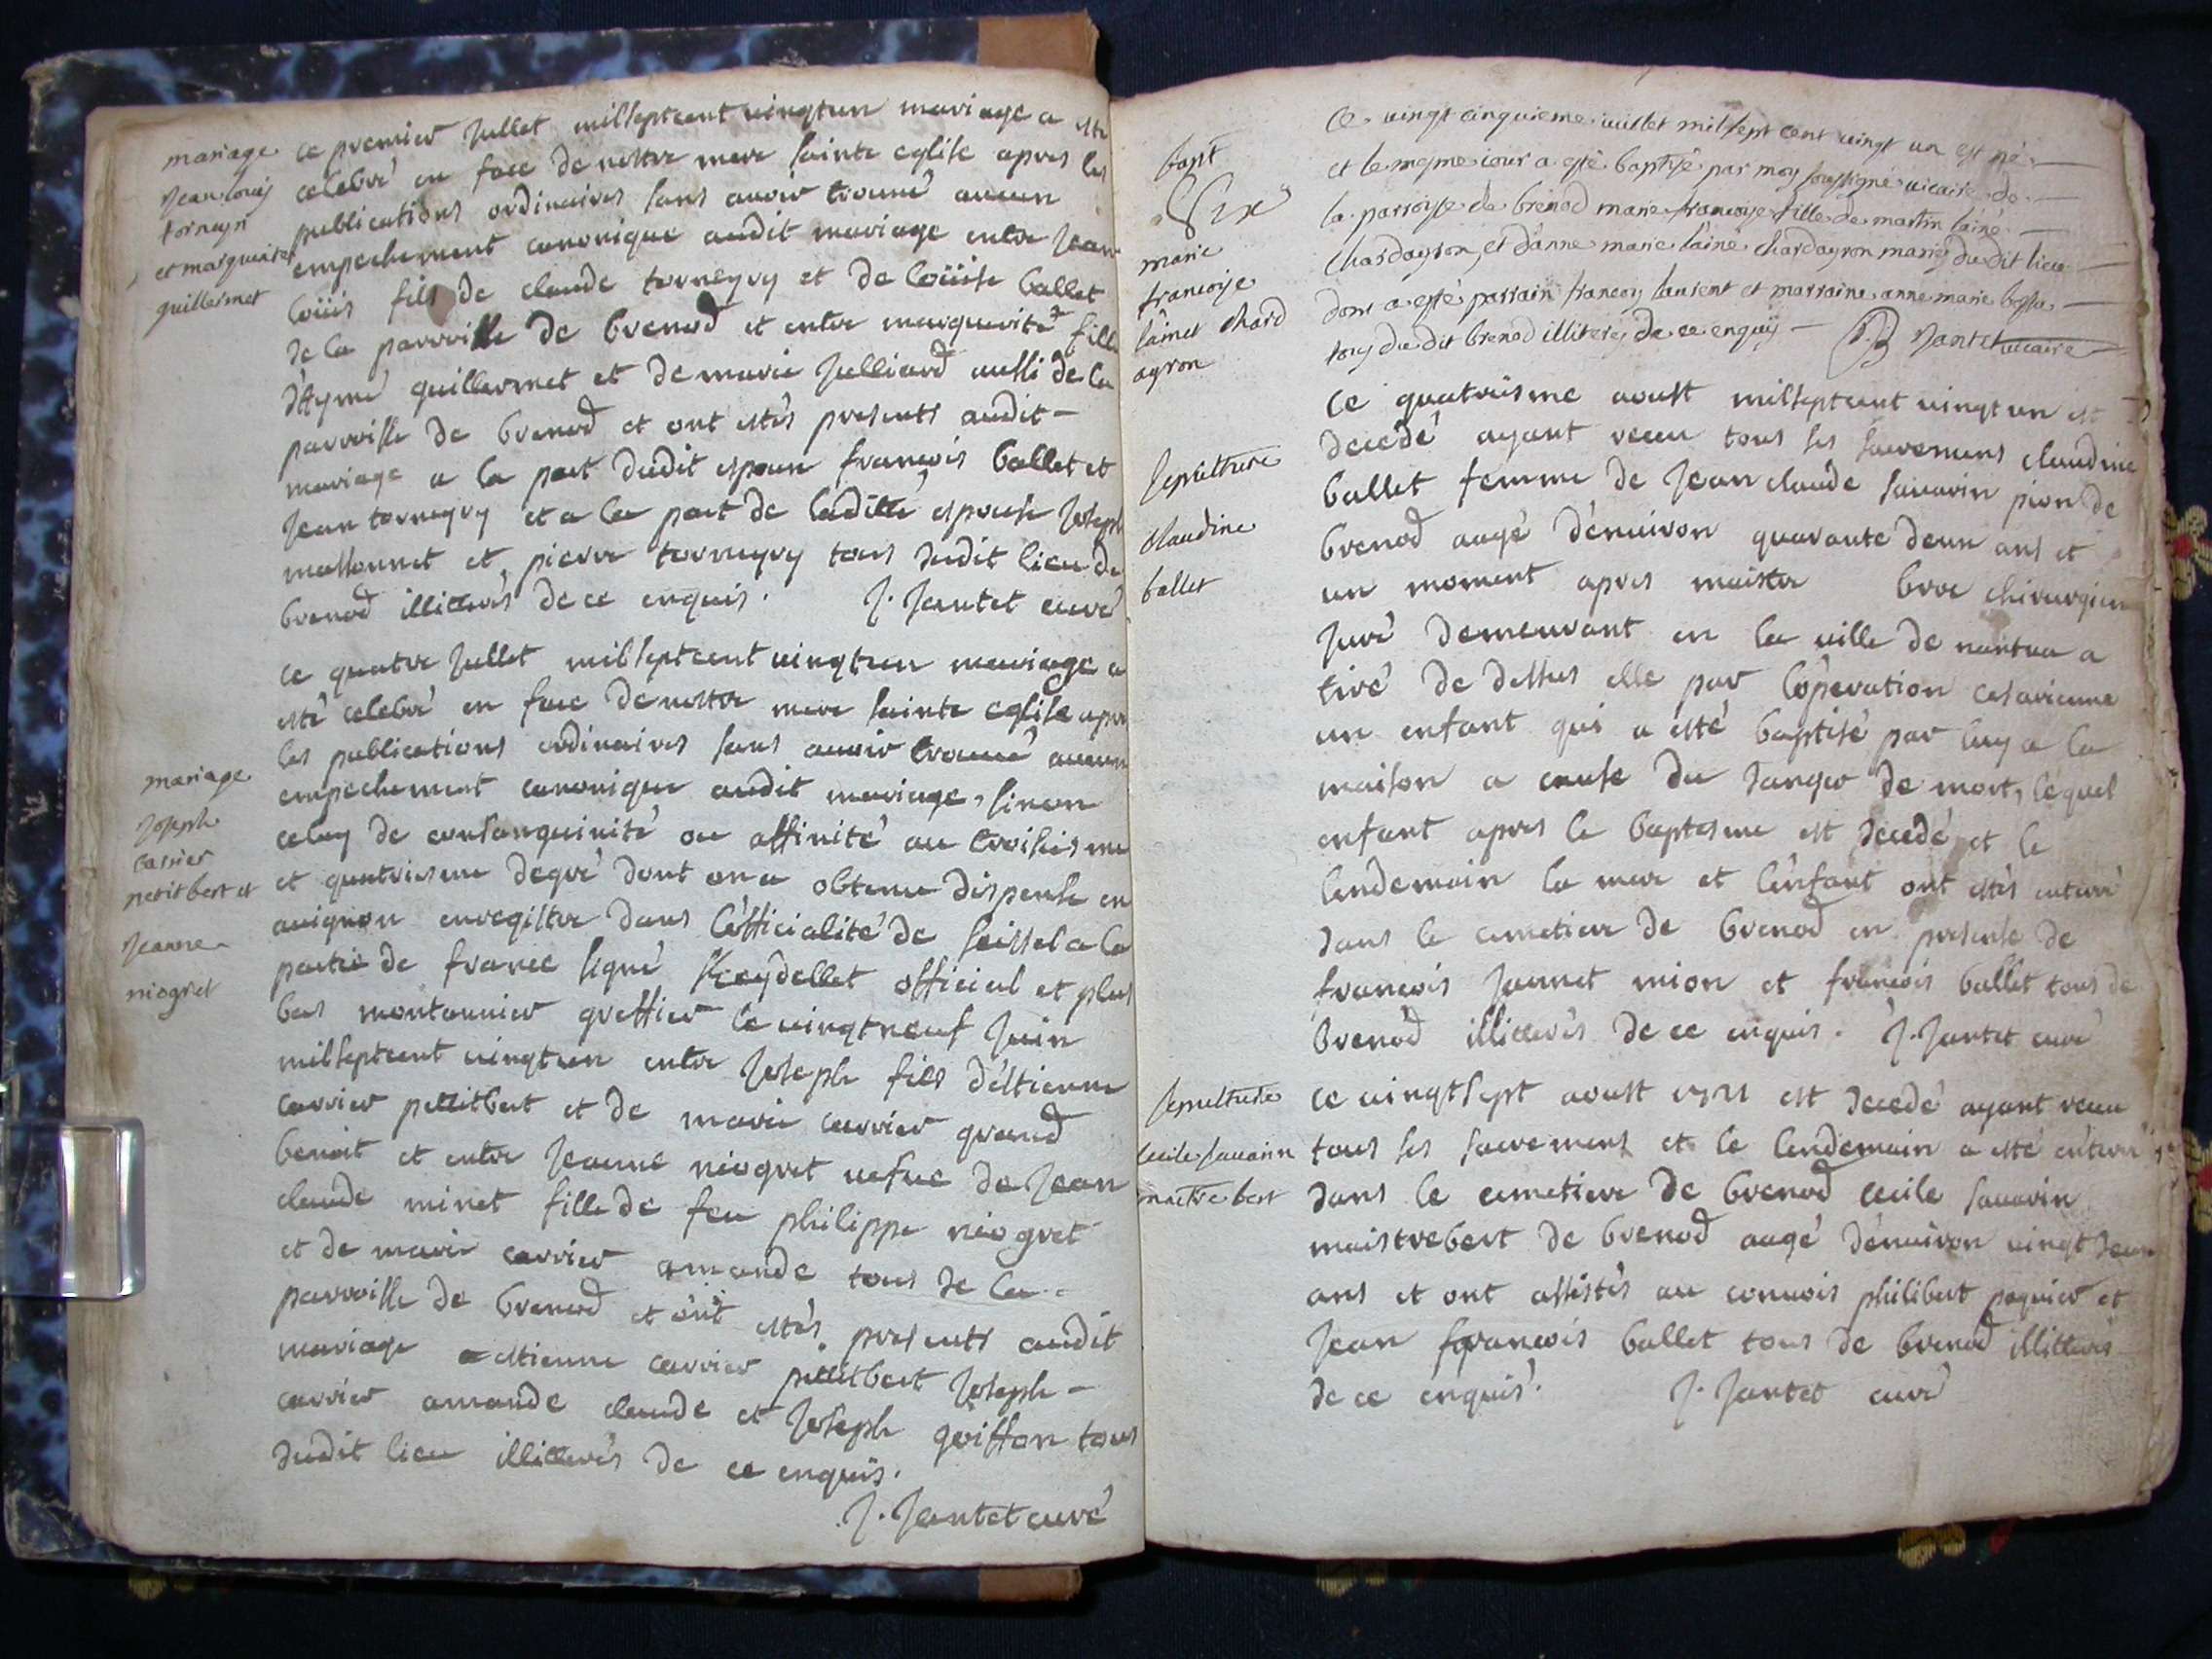 mariage
Jean louis
torneyri
et marguerite
guillermet
ce premier Jullet milseptcent vingtun mariage a esté
celebré en face de nostre mere sainte eglise apres les
publications ordinaires sans avoir trouué aucun
empechement canonique audit mariage entre Jean
loüis fils de claude torneyry et de loüise ballet
de la parroisse de brenod et entre marguerite fille
d'Aymé guillermet et de marie Julliard aussi de la
parroisse de brenod et ont estés presents audit
mariage a la part dudit espoux francois ballet et
Jean torneyry et a la part de laditte espouse Joseph
massonnet et pierre torneyry tous dudit lieu de
brenod illiterés de ce enquis. J. Jantet curé
mariage
Joseph
carrier
petitbert et
Jeanne
niogret
ce quatre Jullet milseptcent vingtun mariage a
esté celebré en face de nostre mere sainte eglise apres
les publications ordinaires sans auoir trouué aucun
empechement canonique audit mariage, sinon
celuy de consanguinité ou affinité au troisiesme
et quatriesme degré dont on a obtenu dispense en
auignon enregistre dans l'officialité de seissel a la
partie de france signé official et plus
bas montannier greffier le vingtneuf Juin
milseptcent vingtun entre Joseph fils d'estienne
carrier petitbert et de marie carrier grand
benoit et entre Jeanne niogret vefue de Jean
claude minet fille de feu philippe niogret
et de marie carrier amande tous de la
parroisse de brenod et ont estés presents audit
mariage estienne carrier petitbert Joseph
carrier amande claude et Joseph goiffon tous
dudit lieu illiterés de ce enquis.
J. Jantet curé
bapt
marie
francoise
laîné chard
ayron
Ce vingt cinquieme iuillet mil sept cent vingt un est né
et le mesme iour a esté baptisé par moy soussigné vicaire de
la parroisse de brenod marie francoise fille de martin lainé
chardayron, et d'anne marie lainé chardayron mariés du dit lieu
dont a esté parrain francois laurent et marraine anne marie
tous du dit brenod illiteres de ce enquis Jantet vicaire
sepulture
claudine
ballet
ce quatriesme aoust milseptcent vingtun est
decedé ayant receu tous ses sacremens claudine
ballet femme de Jean claude sauarin pion de
brenod augé d'enuiron quarante deux ans et
un moment apres maistre broc chirurgien
Juré demeurant en la ville de nantua a
tiré de dessus elle par l'operation cesarienne
un enfant qui a esté baptisé par luy a la
maison a cause du danger de mort, lequel
enfant apres le baptesme est decedé et le
lendemain la mere et l'enfant ont estés enterré
dans le cimetiere de brenod en presence de
francois Jannet mion et francois ballet tous de
Brenod illiterés de ce enquis. J. Jantet curé
sepulture
cecile sauarin
maitrebert
ce vingtsept aoust 1721 est decedé ayant receu
tous ses sacremens et le lendemain a esté enterré
dans le cimetiere de brenod cecile sauarin
maistrebert de brenod augé d'enuiron vingt deux
ans et ont assistés au conuois philibert paquier et
Jean francois ballet tous de brenod illiterés
de ce enquis. J. Jantet curé